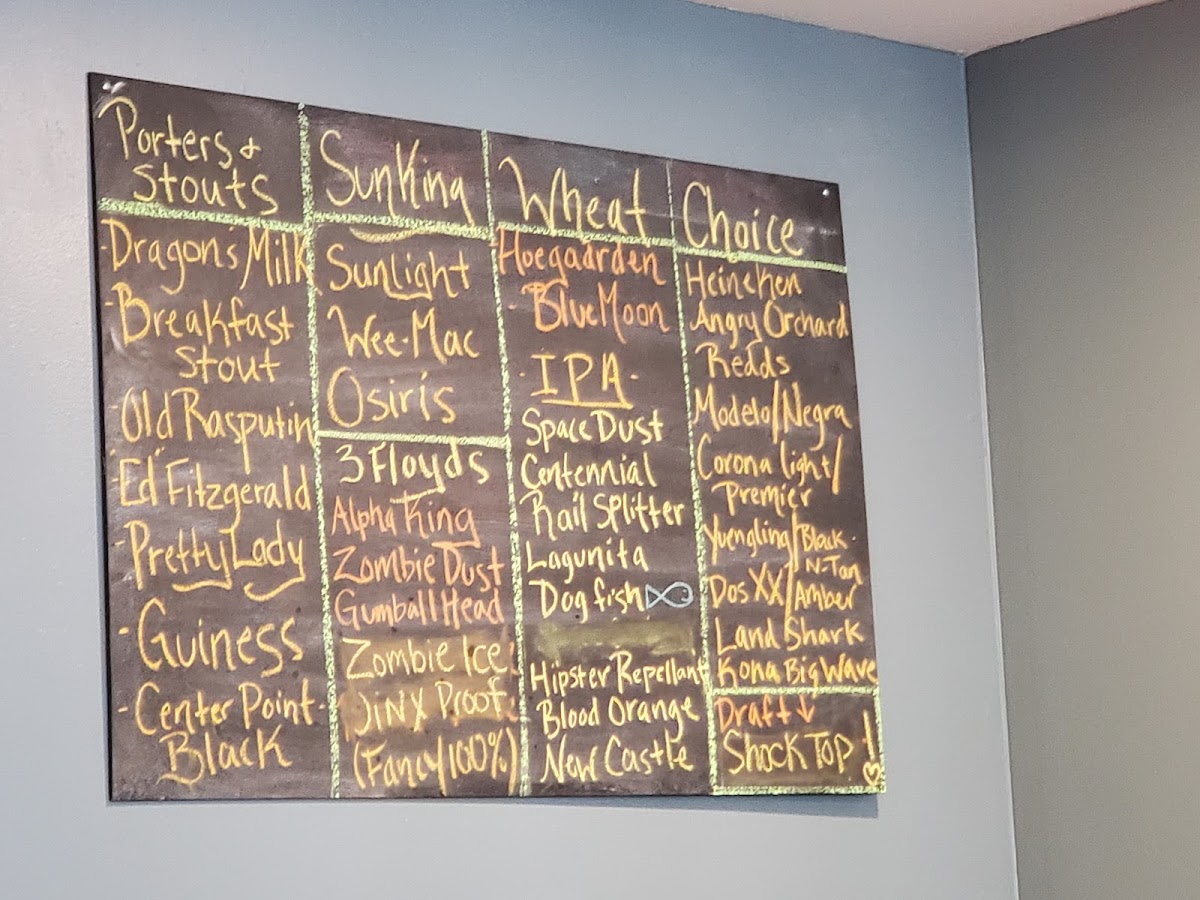 Porters &
Stouts
Dragon's Milk
Breakfast
Stout
Old Rasputin
Ed Fitzgerald
Pretty Lady
Guiness
Center Point
Black
SunKing
Sunlight
Wee-Mac
Osiris
3 Floyds
Alpha King
Zombie Dust
Gumball Head
Zombie Ice
JiNX Proof
(Fancy 100%)
Wheat
Hoegaarden
Blue Moon
IPA
Space Dust
Centennial
Rail Splitter
Lagunita
Dog fish
Hipster Repellant
Blood Orange
New Castle
Choice
Heineken
Angry Orchard
Reads
Modelo/Negra
Corona light/
Premier
Yuengling/Black
N-Tan
Dos XX/Amber
Land Shark
Kona Big Wave
Draft ↓
Shock Top!